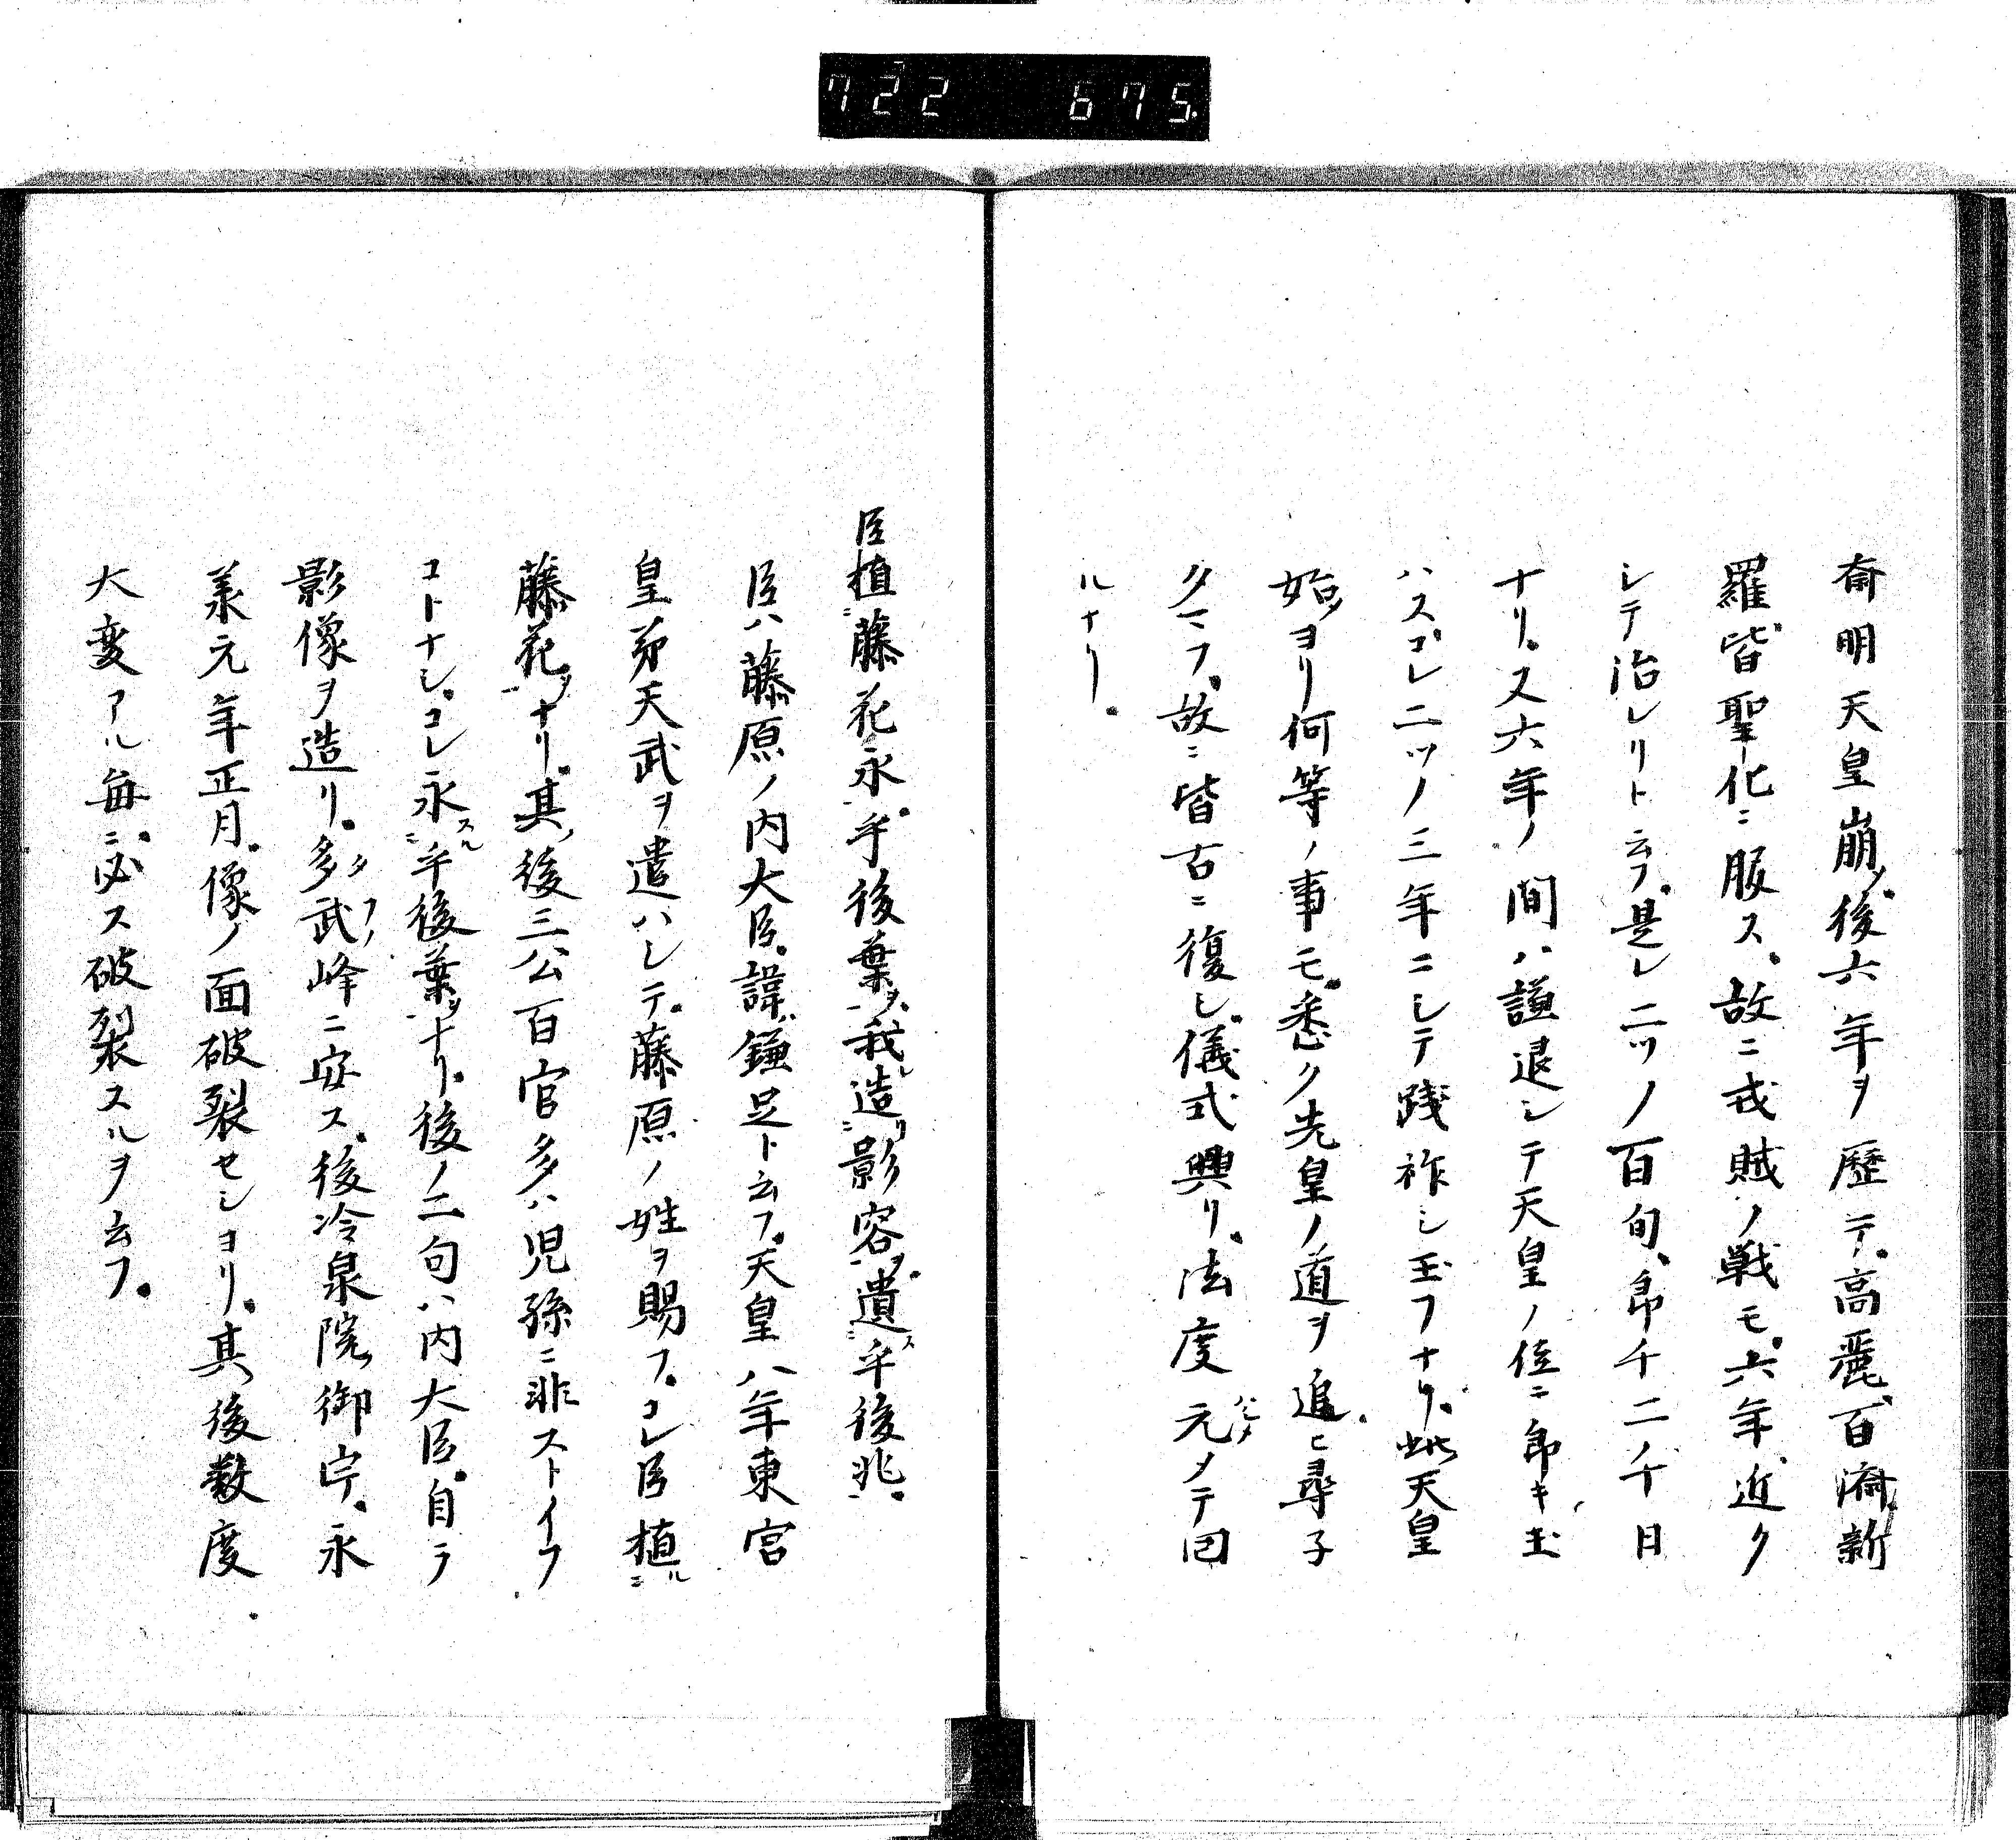 722 675.
斉明天皇崩ノ後六年ヲ歴テ高麗百済新
羅皆聖化ニ服ス故ニ戎賊ノ戦モ六年近ク
シテ治レリト云フ是レ二ツノ百旬即千二千日
ナリ又六年ノ間ハ謙退シテ天皇ノ位ニ即キ玉
ハスコレ二ツノ三年ニシテ践祚シ玉フナリ此天皇
始ヨリ何等ノ事モ悉ク先皇ノ道ヲ追ヒ尋子
タマフ故ニ皆古ニ復シ儀式興リ法度元ハシメメテ固
ルナリ
臣植藤花永乎後葉我造影容遺乎後兆
臣ハ藤原ノ内大臣諱ハ鎌足ト云フ天皇八年東宮
皇弟天武ヲ遣ハシテ藤原ノ姓ヲ賜フコレ臣植ルニ
藤花ヲナリ其ノ後三公百官多ハ児孫ニ非ストイフ
コトナシコレ永スルニ乎後葉ヲナリ後ノ二句ハ内大臣自ラ
影像ヲ造リ多武峰タフノニ安ス後冷泉院御宇永
承元年正月像ノ面破裂セシヨリ其後数度
大変アル毎ニ必ス破裂スルヲ云フ